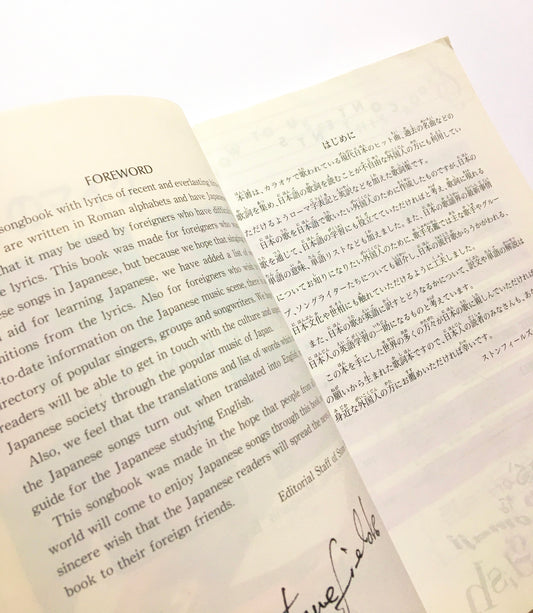 FOREWORD
songbook with lyrics of recent and everlasting
are written in Roman alphabets and have Japan
hat it may be used by foreigners who have diffi
e lyrics. This book was made for foreigners who
ese songs in Japanese, but because we hope that sin
aid for learning Japanese, we have added a list o
nitions from the lyrics. Also for foreigners who wish
-to-date information on the Japanese music scene, ther
directory of popular singers, groups and songwriters. We
readers will be able to get in touch with the culture and
Japanese society through the popular music of Japan.
Also, we feel that the translations and list of words which
the Japanese songs turn out when translated into English
guide for the Japanese studying English.
This songbook was made in the hope that people from
world will come to enjoy Japanese songs through this book
sincere wish that the Japanese readers will spread the
book to their foreign friends.
Editorial Staff of
はじめに
本書は、カラオケで歌われている現代日本のヒット曲、過去の名曲などの
歌詞を集め、日本語の歌詞を読むことが不自由な外国人の方にも利用してい
ただけるようローマ字表記と英訳などを揃えた歌詞集です。
日本の歌を日本語で歌いたい外国人のために作成したものですが、日本の
歌を通して、日本語の学習にも役立てていただければと考え、歌詞に現れる
単語の意味、単語リストなども加えました。また、日本の歌謡界の最新事情
についてお知りになりたい外国人のために、歌手名鑑では主な歌手やグルー
プ、ソングライターたちについても紹介し、日本の流行歌からうかがわれる、
日本文化や世相にも触れていただけるように工夫しました。
また、日本の歌が英語に訳すとどうなるかについて、訳文や単語の解説は
日本人の英語学習の一助になるものと考えています。
この本を手にした世界の多くの方々が日本の歌に親しんでいただければ
の願いから生まれた歌詞本ですので、日本人の読者のみなさんも、あ
身近な外国人の方にお薦めいただければ幸いです。
ストンフィールズ